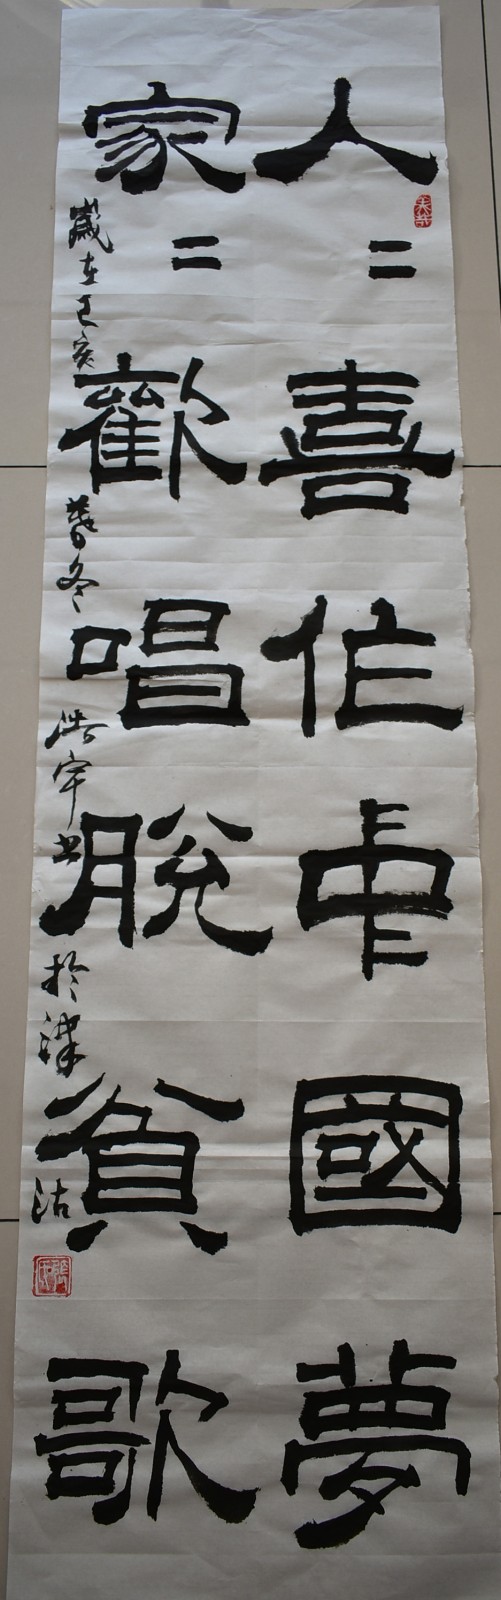 人二喜作中國夢
家二歡唱脫貧歌
歲在己亥暮冬浩宇书於津沽